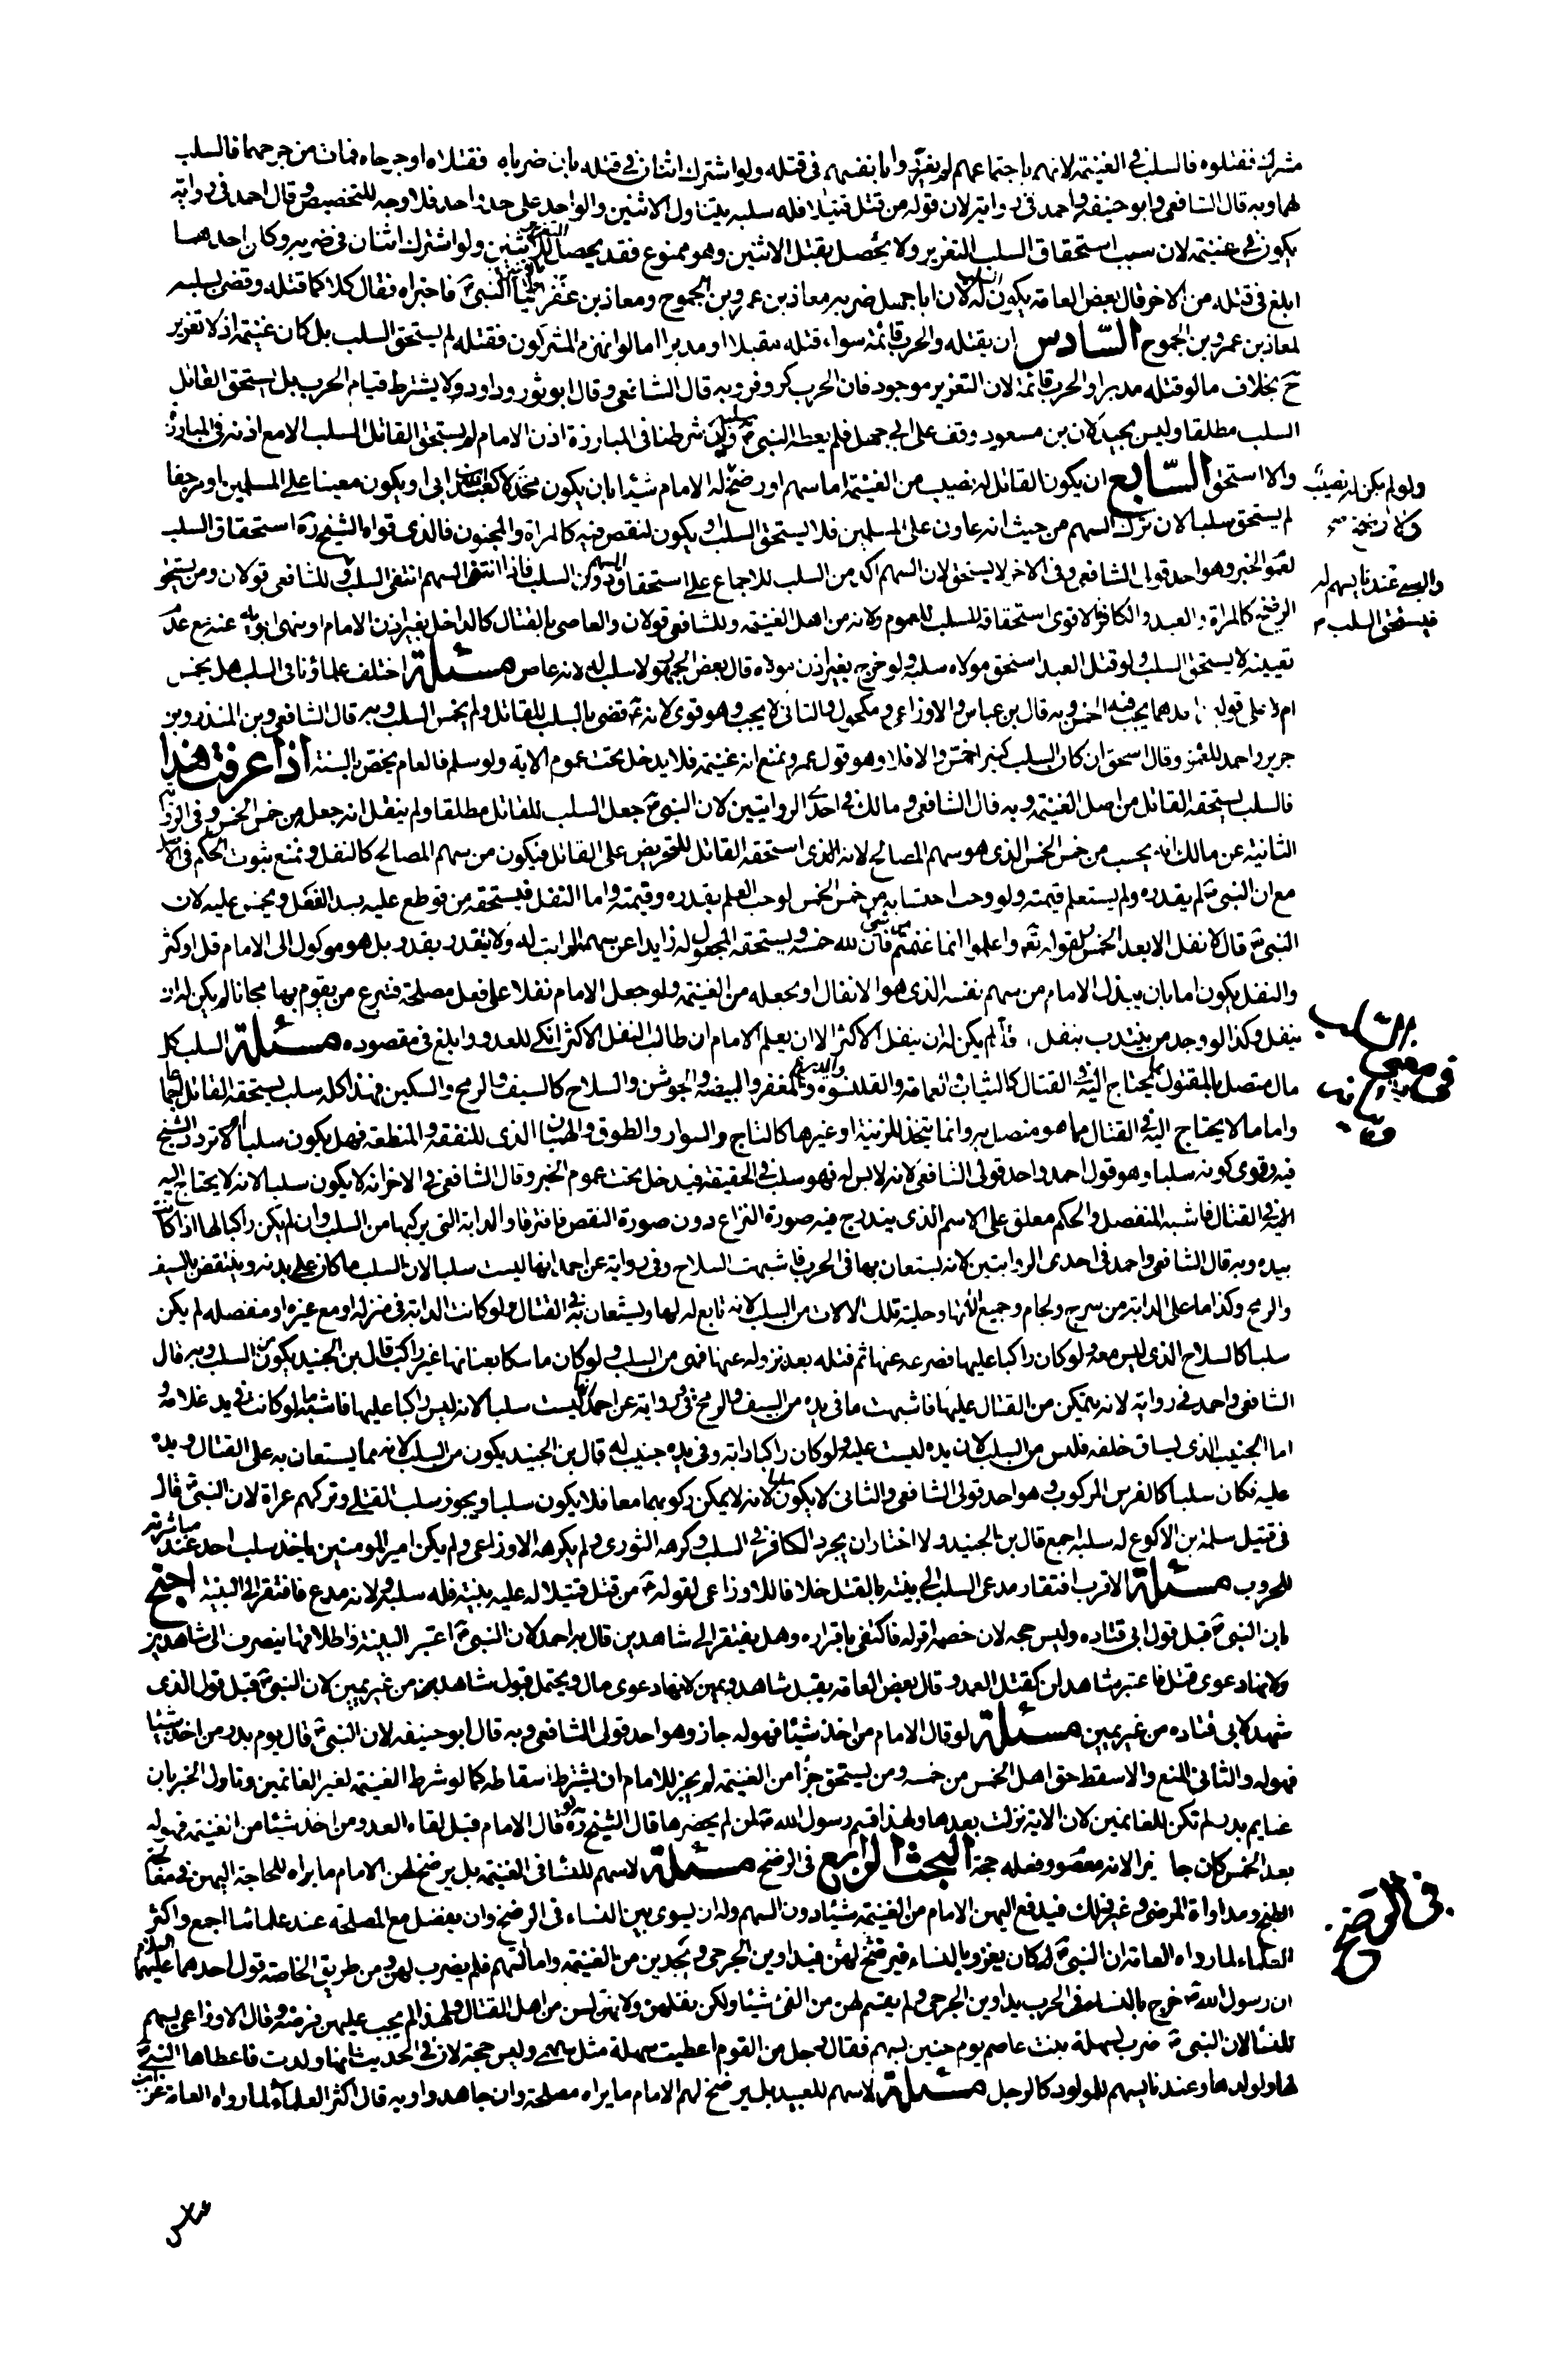 مشرك فقتلوه فالسلب في الغنيمة لانهم باجتماعهم لم يغرروا بانفسهم في قتله ولو اشترك اثنان في قتله بان ضرباه فقتلاه او جرحاه فمات من جرحهما فالسلب
لهما وبه قال الشافعي وابو حنيفة واحمد في رواية لان قوله من قتل قتيلا فله سلبه يتناول الاثنين والواحد على حد واحد فلا وجه للتخصيص وقال احمد في رواية
يكون في غنيمة لان سبب استحقاق السلب التغرير ولا يحصل بقتل الاثنين وهو ممنوع فقد يحصل التغرير بالاثنين ولو اشترك اثنان في ضربه وكان احدهما
ابلغ في قتله من الاخر قال بعض العامة يكون السلب له لان ابا جهل ضربه معاذ بن عمرو بن الجموح ومعاذ بن عفرا واتيا النبي ص فاخبراه فقال كلاكما قتله وقضى بسلبه
لمعاذ بن عمرو بن الجموح السادس ان يقتله والحرب قائمة سواء قتله مقبلا او مدبرا اما لو انهزم المشركون فقتله لم يستحق السلب بل كان غنيمة اذ لا تغرير
ح بخلاف ما لو قتله مدبرا والحرب قائمة لان التغرير موجود فان الحرب كر وفر وبه قال الشافعي وقال ابو ثور وداود ولا يشترط قيام الحرب بل يستحق القاتل
السلب مطلقا وليس بجيد لان بن مسعود وقف على ابي جهل فلم يعطه النبي ص سلبه ولو شرطنا في المبارزة اذن الامام لم يستحق القاتل السلب الا مع اذنه في المبارزة
والا استحق السابع ان يكون القاتل له نصيب من الغنيمة اما سهم او رضخ له الامام شيئا بان يكون مخذلا كعبد الله بن ابي او يكون معينا على المسلمين او مرجفا
ولو لم يكن له نصيب
لم يستحق سلبا لان ترك السهم من حيث انه عاون على المسلمين فلا يستحق السلب او يكون لنقص فيه كالمراة والمجنون فالذي قواه الشيخ ره استحقاق السلب
لعموم الخبر وهو احد قولي الشافعي وفي الاخر لا يستحق لان السهم اكد من السلب للاجماع على استحقاق السهم دون السلب فاذا انتفى السهم انتفى السلب وللشافعي قولان ومن يستحق
والصبي عندنا يسهم له
الرضخ كالمراة والعبد والكافر الاقوى استحقاقه للسلب للعموم ولانه من اهل الغنيمة وللشافعي قولان والعاصي بالقتال كالداخل بغير اذن الامام او ينهى ابواه عنه مع عدم
فيستحق السلب
تعيينه لا يستحق السلب ولو قتل العبد استحق مولاه سلبه ولو خرج بغير اذن مولاه قال بعض الجمهور لا سلب له لانه عاص مسئلة اختلف علماؤنا في السلب هل يخمس
ام لا على قولين احدهما يجب فيه الخمس وبه قال بن عباس والاوزاعي ومكحول والثاني لا يجب وهو قوي لانه ع قضى بالسلب للقاتل ولم يخمس السلب وبه قال الشافعي وبن المنذر وبن
جرير واحمد وقال اسحق ان كان السلب كثيرا خمس والا فلا وهو قول عمر ونمنع انه غنيمة فلا يدخل تحت عموم الاية ولو سلم فالعام يخص بالسنة اذا عرفت هذا
فالسلب يستحقه القاتل من اصل الغنيمة وبه قال الشافعي ومالك في احدى الروايتين لان النبي ص جعل السلب للقاتل مطلقا ولم ينقل انه جعله من خمس الخمس وفي الرواية
الثانية عن مالك انه يحسب من خمس الخمس الذي هو سهم المصالح لانه الذي استحقه القاتل للتحريض على القتال فيكون من سهم المصالح كالنفل ونمنع ثبوت الحكم في الاصل
مع ان النبي ص لم يقدره ولم يستعلم قيمته ولو وجب احتسابه من خمس الخمس لوجب العلم بقدره وقيمته واما النفل فيستحقه من قوطع عليه بسد الفعل ويخمس عليه لان
النبي ص قال لا نفل الا بعد الخمس لقوله تع واعلموا انما غنمتم من شئ فان لله خمسه ويستحقه المجعول له زايدا عن سهم الراتب له ولا يتقدر بقدر بل هو موكول الى الامام قل او كثر
والنفل يكون اما بان يبذل الامام من سهم نفسه الذي هو الانفال او يجعله من الغنيمة ولو جعل الامام نفلا على فعل مصلحة فتبرع من يقوم بها مجانا لم يكن له ان
ينفل وكذا لو وجد من ينتدب بنفل لم يكن له ان ينفل الاكثر الا ان يعلم الامام ان طالب النفل الاكثر انكى للعدو وابلغ في مقصوده مسئلة السلب كل
مال متصل بالمقتول مما يحتاج اليه في القتال كالثياب والعمامة والقلنسوة والدرع والمغفر والبيضة والجوشن والسلاح كالسيف والرمح والسكين فهذا كله سلب يستحقه القاتل اجماعا
واما ما لا يحتاج اليه في القتال مما هو متصل به وانما يتخذ للزينة او غيرها كالتاج والسوار والطوق والهميان الذي للنفقة والمنطقة فهل يكون سلبا ام لا تردد الشيخ
فيه وقوى كونه سلبا وهو قول احمد واحد قولي الشافعي لانه لابس له فهو سلب في الحقيقة فيدخل تحت عموم الخبر وقال الشافعي في الاخر انه لا يكون سلبا لانه لا يحتاج اليه
في القتال فاشبه المنفصل والحكم معلق على الاسم الذي يندرج فيه صورة النزاع دون صورة النقص فافترقا والدابة التي يركبها من السلب وان لم يكن راكبا لها اذا كانت
بيده وبه قال الشافعي واحمد في احدى الروايتين لانه يستعان بها في الحرب فاشبهت السلاح وفي رواية عن احمد انها ليست سلبا لان السلب ما كان على بدنه وينتقض بالسيف
والرمح وكذا ما على الدابة من سرج ولجام وجميع الاتها وحلية تلك الالات من السلب لانه تابع لها ويستعان به في القتال ولو كانت الدابة في منزله او مع غيره او منفصله لم يكن
سلبا كالسلاح الذي ليس معه ولو كان راكبا عليها فصرعه عنها ثم قتله بعد نزوله عنها فهي من السلب ولو كان ماسكا بعنانها غير راكب قال بن الجنيد يكون من السلب وبه قال
الشافعي واحمد في رواية لانه يتمكن من القتال عليها فاشبهت ما في يده من السيف والرمح وفي رواية عن احمد انها ليست سلبا لانه ليس راكبا عليها فاشبه ما لو كانت في يد غلامه و
اما الجنيب الذي يساق خلفه فليس من السلب لان يده ليست عليه ولو كان راكبا دابة وفي يده جنيب له قال بن الجنيد يكون من السلب لانه مما يستعان به على القتال ويده
عليه فكان سلبا كالفرس المركوب وهو احد قولي الشافعي والثاني لا يكون سلبا لانه لا يمكن ركوبهما معا فلا يكون سلبا ويجوز سلب القتلى وتركهم عراة لان النبي ص قال
في قتيل سلمة بن الاكوع له سلبه اجمع قال بن الجنيد ولا اختار ان يجرد الكافر في السلب وكرهه الثوري ولم يكرهه الاوزاعي ولم يكن امير المومنين ياخذ سلب احد عند مباشرته
للحروب مسئلة الاقرب افتقار مدعي السلب الى بينة بالقتل خلافا للاوزاعي لقوله ع من قتل قتيلا له عليه بينة فله سلبه ولانه مدع فافتقر الى البينة احتج
بان النبي ص قبل قول ابي قتاده وليس حجه لان خصمه اقر له فاكتفى باقراره وهل يفتقر الى شاهدين قال به احمد لان النبي ص اعتبر البينة واطلاقها ينصرف الى شاهدين
ولانها دعوى قتل فاعتبر شاهدان كقتل العمد وقال بعض العامة يقبل شاهد ويمين لانها دعوى مال ويحتمل قبول شاهد من غير يمين لان النبي ص قبل قول الذي
شهد لابي قتاده من غير يمين مسئلة لو قال الامام من اخذ شيئا فهو له جاز وهو احد قولي الشافعي وبه قال ابو حنيفه لان النبي ص قال يوم بدر من اخذ شيئا
فهو له والثاني المنع والا سقط حق اهل الخمس من خمسه ومن يستحق جزأ من الغنيمة لم يجز للامام ان يشترط اسقاطه كما لو شرط الغنيمة لغير الغانمين وتاول الخبر بان
غنايم بدر لم تكن للغانمين لان الاية نزلت بعدها ولهذا قسم رسول الله ص لمن لم يحضرها قال الشيخ ره لو قال الامام قبل لقاء العدو من اخذ شيئا من الغنيمة فهو له
بعد الخمس كان جايزا لانه معصوم وفعله حجة البحث الرابع في الرضخ مسئلة لا سهم للنسا في الغنيمة بل يرضخ لهن الامام ما يراه للحاجة اليهن في
الطبخ ومداواة المرضى وغير ذلك فيدفع اليهن الامام من الغنيمة شيئا دون السهم وله ان يسوي بين النساء في الرضخ وان يفضل مع المصلحة عند علمائنا اجمع واكثر
العلماء لما رواه العامة ان النبي ص كان يغزو بالنساء فيرضخ لهن فيداوين الجرحى ويحذين من الغنيمة واما السهم فلم يضرب لهن ومن طريق الخاصة قول احدهما عليهما السلام
ان رسول الله ص خرج بالنساء في الحرب يداوين الجرحى ولم يقسم لهن من الفئ شيئا ولكن نفلهن ولانهن لسن من اهل القتال ولهذا لم يجب عليهن فرضه وقال الاوزاعي يسهم
للنسا لان النبي ص ضرب لسهلة بنت عاصم يوم حنين بسهم فقال رجل من القوم اعطيت سهلة مثل سهمي وليس حجة لان في الحديث انها ولدت فاعطاها النبي ص
لها ولولدها وعندنا يسهم للمولود كالرجل مسئلة لا سهم للعبيد بل يرضخ لهم الامام ما يراه مصلحة وان جاهدوا وبه قال اكثر العلماء لما رواه العامة عن
في معنى السلب
في الرضخ